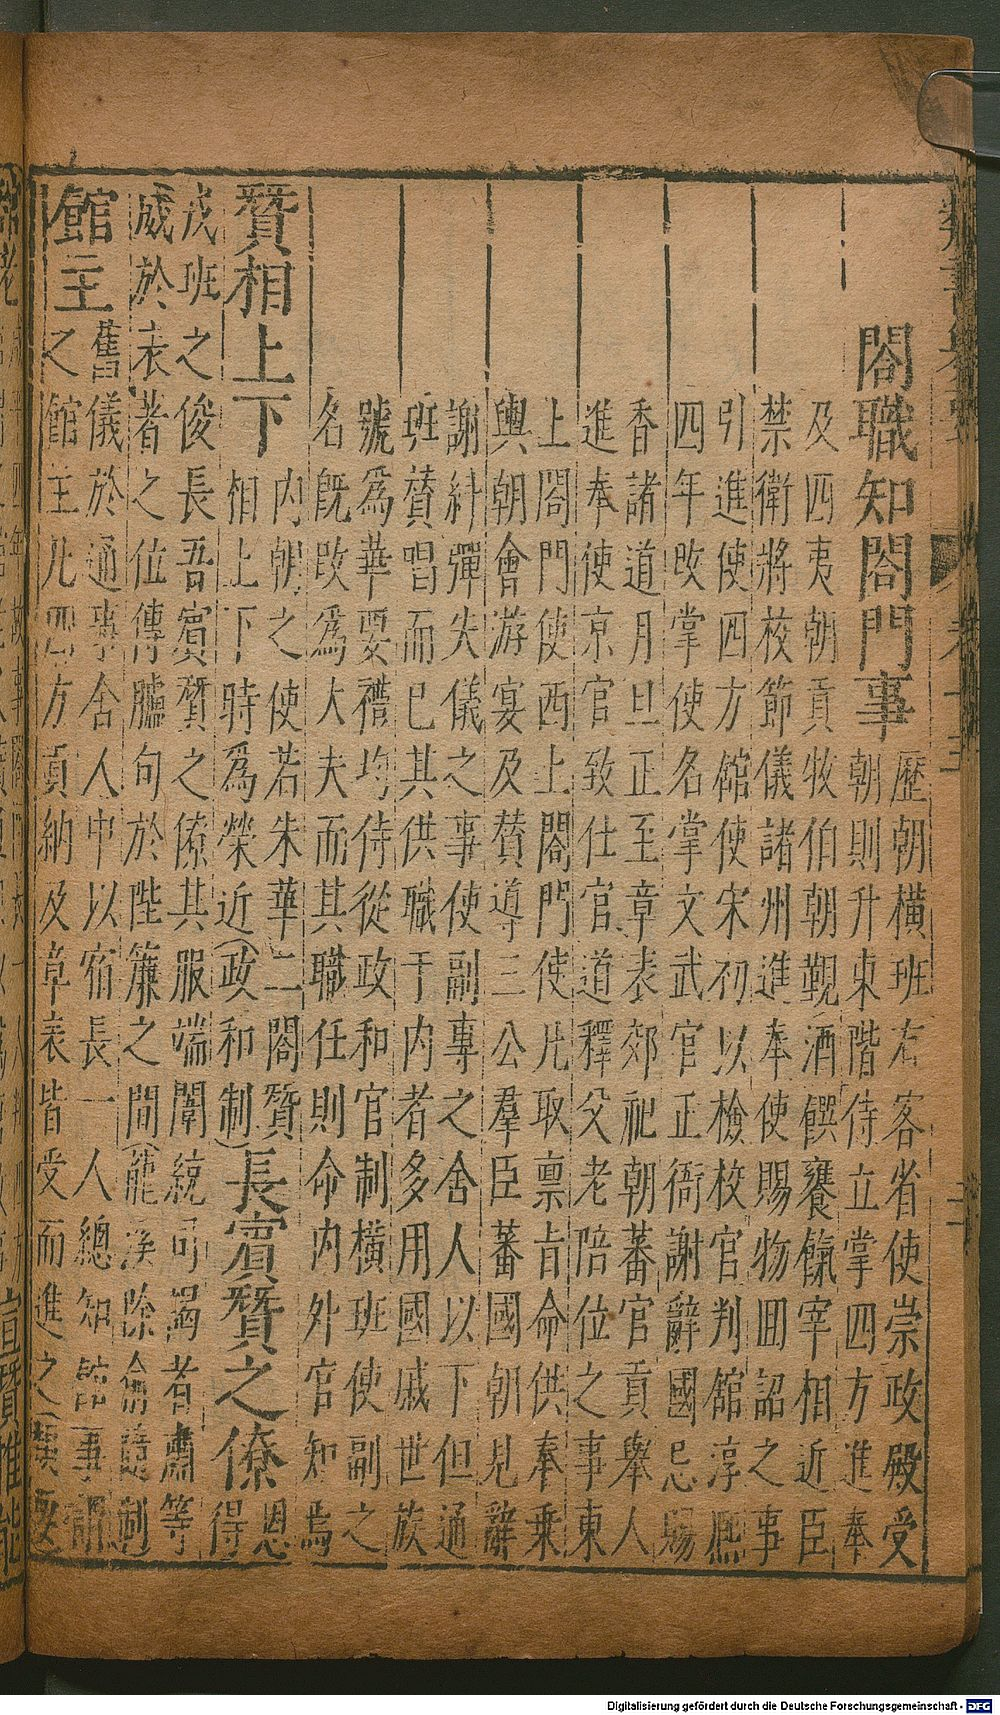 閤職知閤門事
歷朝橫班右客省使崇政殿受
朝則升東階侍立掌四方進奉
及四夷朝貢牧伯朝覲酒饌饔餼宰相近臣
禁衛將校節儀諸州進奉使賜物回詔之事
引進使四方館使宋初以檢校官判館淳熙
四年改掌使名掌文武官正衙謝辭國忌賜
香諸道月旦正至章表郊祀朝蕃官貢舉人
進奉使京官致仕官道釋父老陪位之事東
上閤門使西上閤門使凡取禀旨命供奉乗
輿朝會游宴及賛導三公羣臣蕃國朝見辭
謝糾彈失儀之事使副專之舍人以下但通
班賛唱而已其供職于内者多用國戚世族
號爲華要禮均侍從政和官制橫班使副之
名旣改爲大夫而其職任則命内外官知焉
贊相上下
内朝之使若朱華二閤贊
相上下時爲榮近(政和制)
長賓贊之僚
恩
得
茂班之俊長吾賓贊之僚其服端闈統司謁者肅等
威於表著之位傳臚句於陛簾之間
館主
舊儀於通事舍人中以宿長一人總知館事謂
之館主凡四方貢納及章表皆受而進之
Digitalisierung gefördert durch die Deutsche Forschungsgemeinschaft - DFG